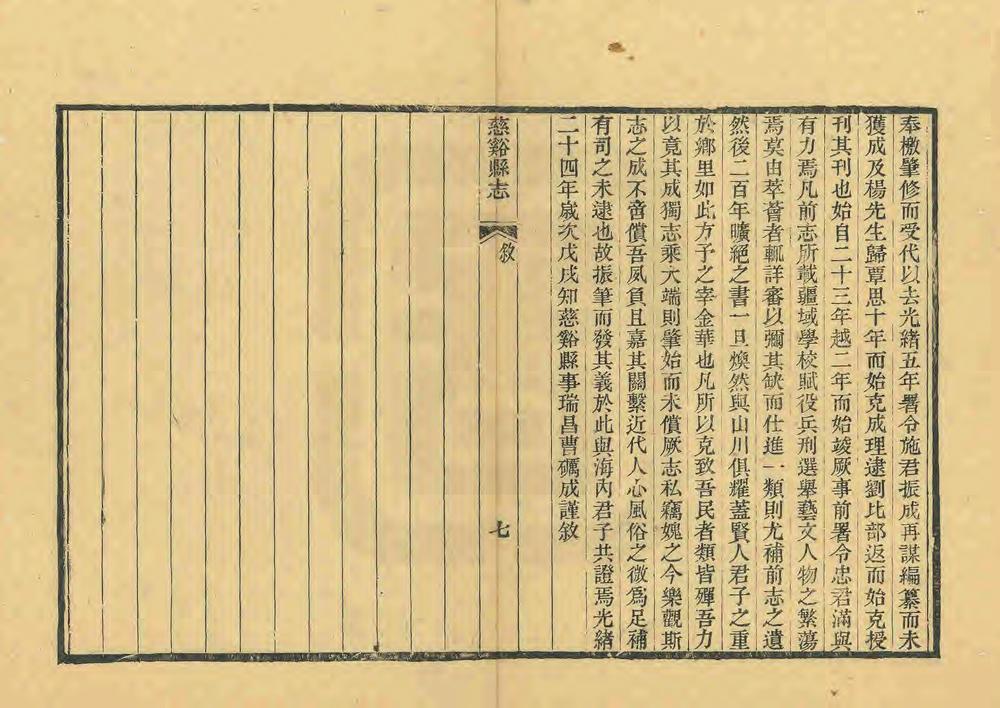 奉檄肇修而受代以去光緒五年署令施君振成再謀編纂而未
獲成及楊先生歸覃思十年而始克成理逮劉比部返而始克授
刊其刊也始自二十三年越二年而始竣厥事前署令忠君滿與
有力焉凡前志所載疆域學校賦役兵刑選舉藝文人物之繁蕩
焉莫由萃薈者輒詳審以彌其缺而仕進一類則尤補前志之遺
然後二百年曠絕之書一旦煥然與山川俱耀蓋賢人君子之重
於鄉里如此方予之宰金華也凡所以克致吾民者類皆殫吾力
以竟其成獨志乘大端則肇始而未償厥志私竊媿之今樂觀斯
志之成不啻償吾夙負且嘉其關繫近代人心風俗之微爲足補
有司之未逮也故振筆而發其義於此與海內君子共證焉光緒
二十四年歲次戊戌知慈谿縣事瑞昌曹礪成謹敘
慈谿縣志
敘
七